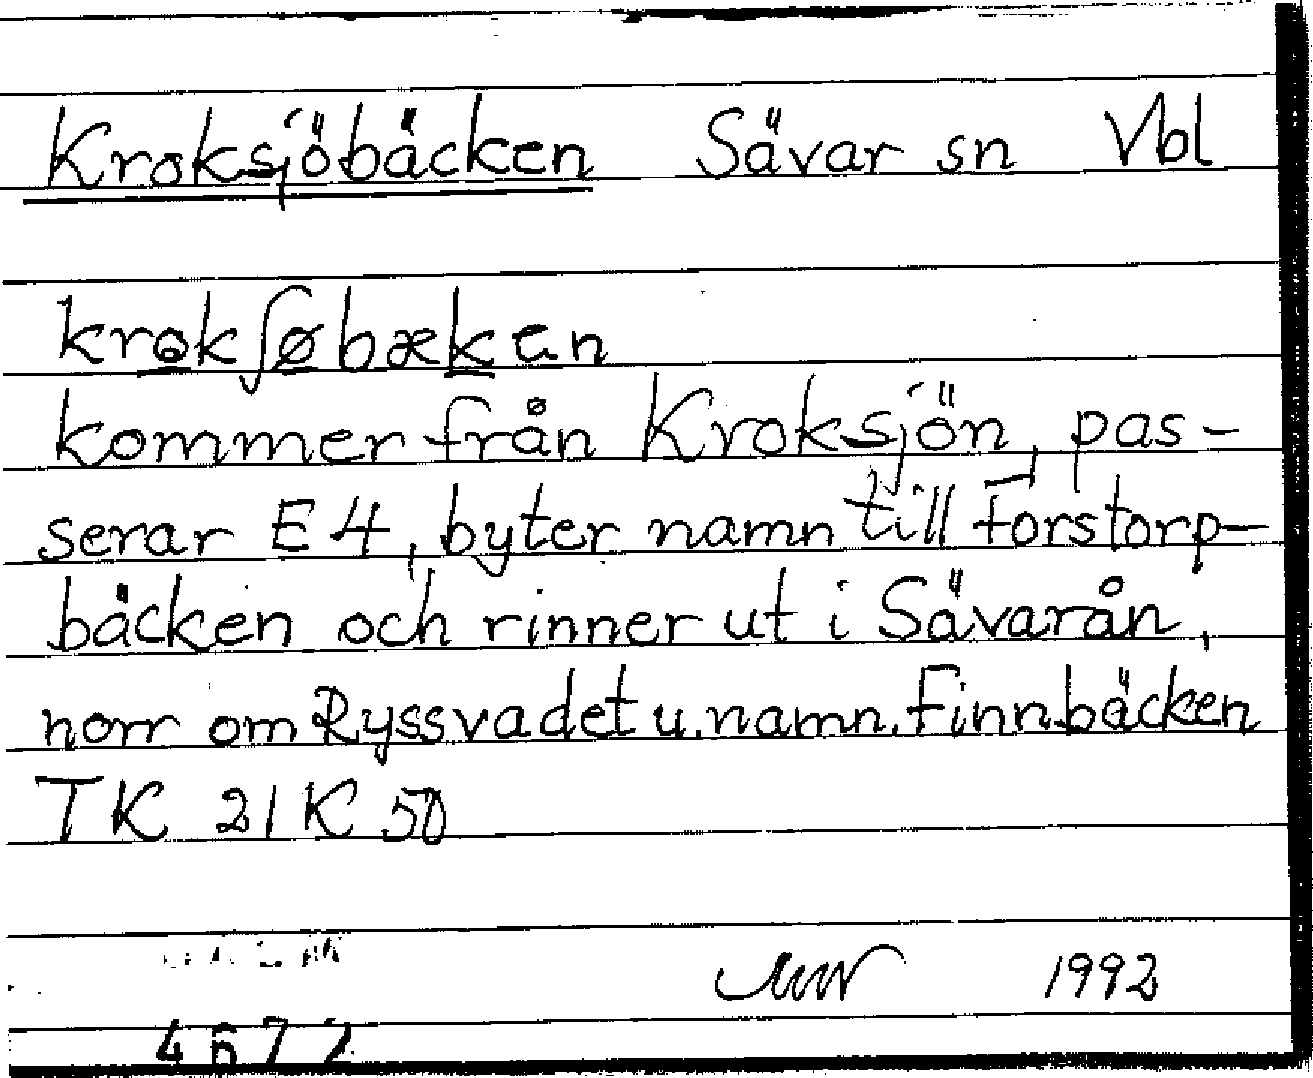 Kroksjöbäcken Sävar sn Vbl
krokʃøbækən
kommer från Kroksjön, pas-
serar E4, byter namn till Forstorp-
bäcken och rinner ut i Sävarån,
norr om Ryssvadet u. namn. Finnbäcken
TK 21K 50
1992
4672